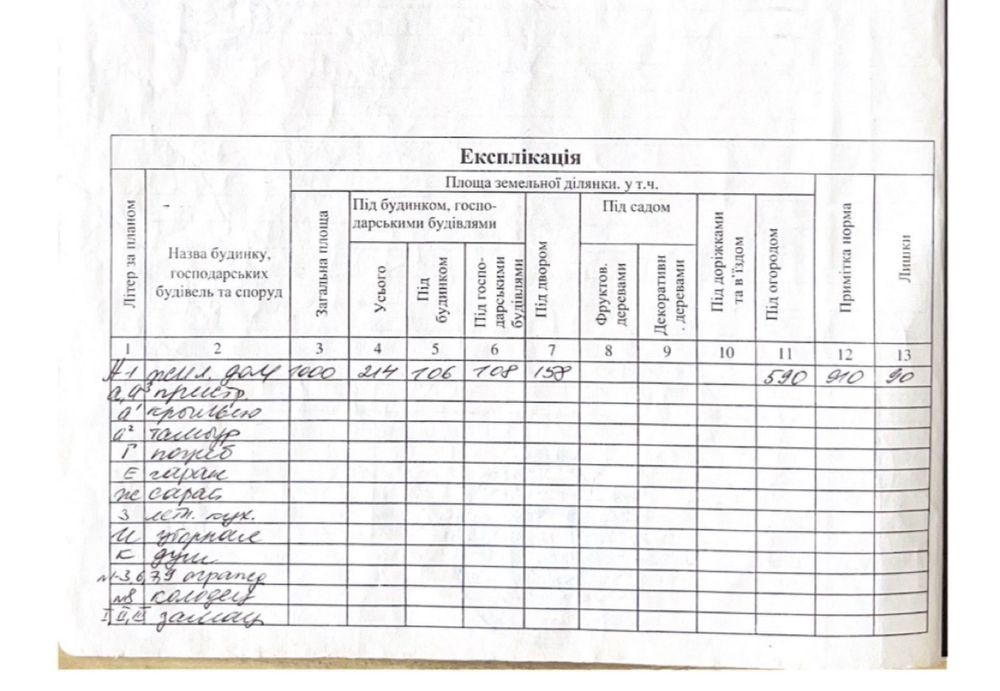 Експлікація
Площа земельної ділянки. у т.ч.
Літер за планом
Назва будинку,
господарських
будівель та споруд
Загальна площа
Під будинком, госпо-
дарськими будівлями
Усього
Під
будинком
Під госпо-
дарськими
будівлями
Під двором
Під садом
Фруктов.
деревами
Декоративн
. деревами
Під доріжками
та в'їздом
Під огородом
Примітка норма
Лишки
1 2 3 4 5 6 7 8 9 10 11 12 13
А-1 жил. дом 1000 214 106 108 158 590 910 90
а, а³ пристр.
а¹ крыльцо
а² тамбур
Г погреб
Е гараж
Ж сарай
З летн. кух.
И уборная
К душ
№1-3,6,7,9 огражд
№8 колодец
I, II, III замощ